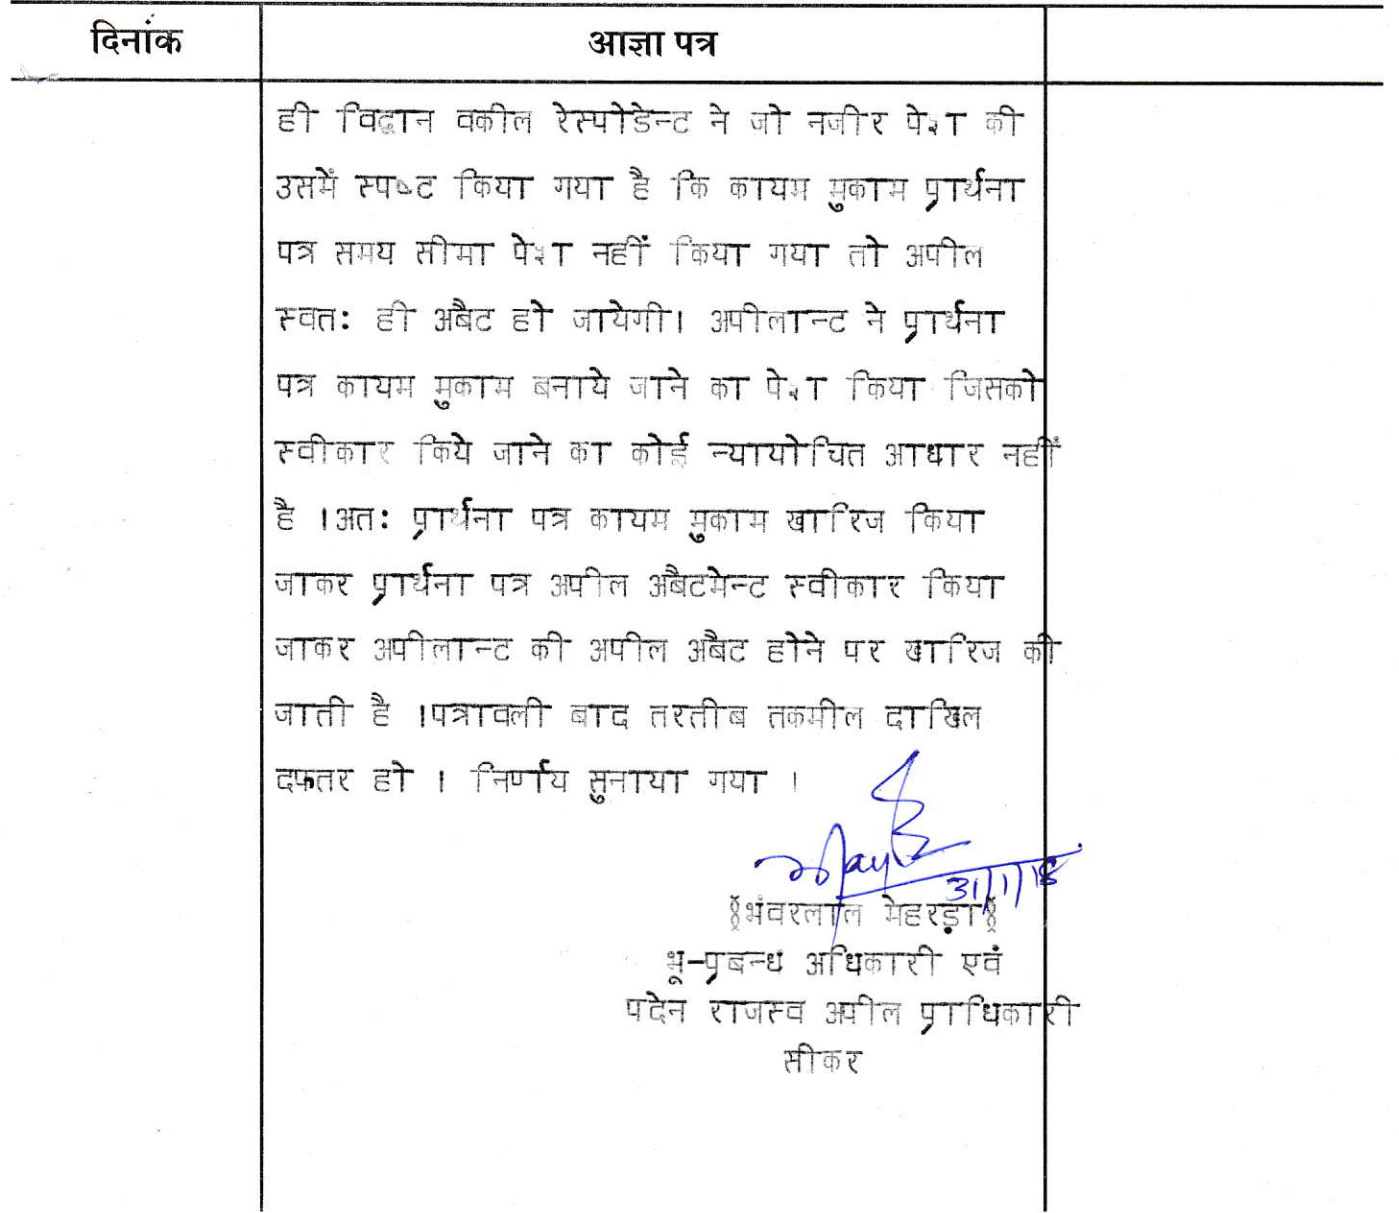 दिनांक आज्ञा पत्र
ही विद्वान वकील रेस्पोडेन्ट ने जो नजीर पेश की
उसमें स्पष्ट किया गया है कि कायम मुकाम प्रार्थना
पत्र समय सीमा पेश नहीं किया गया तो अपील
स्वतः ही अबैट हो जायेगी। अपीलान्ट ने प्रार्थना
पत्र कायम मुकाम बनाये जाने का पेश किया जिसको
स्वीकार किये जाने का कोई न्यायोचित आधार नहीं
है ।अतः प्रार्थना पत्र कायम मुकाम खारिज किया
जाकर प्रार्थना पत्र अपील अबैटमेन्ट स्वीकार किया
जाकर अपीलान्ट की अपील अबैट होने पर खारिज की
जाती है ।पत्रावली बाद तरतीब तकमील दाखिल
दफतर हो । निर्णय सुनाया गया ।
31/1/18
§भंवरलाल मेहरड़ा§
भू-प्रबन्ध अधिकारी एवं
पदेन राजस्व अपील प्राधिकारी
सीकर